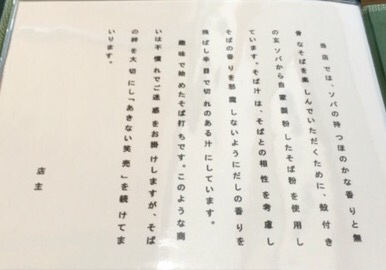 当店では、ソバの持つほのかな香りと無
骨なそばを楽しんでいただくために、殻付き
の玄ソバから自家製粉したそば粉を使用し
ています。そば汁は、そばとの相性を考慮し
そばの香りを邪魔しないようにだしの香りを
飛ばし辛目で切れのある汁にしています。
趣味で始めたそば打ちです。このような商
いは不慣れでご迷惑をお掛けしますが、そば
の絆を大切にし「あきない笑売」を続けてま
いります。
店主